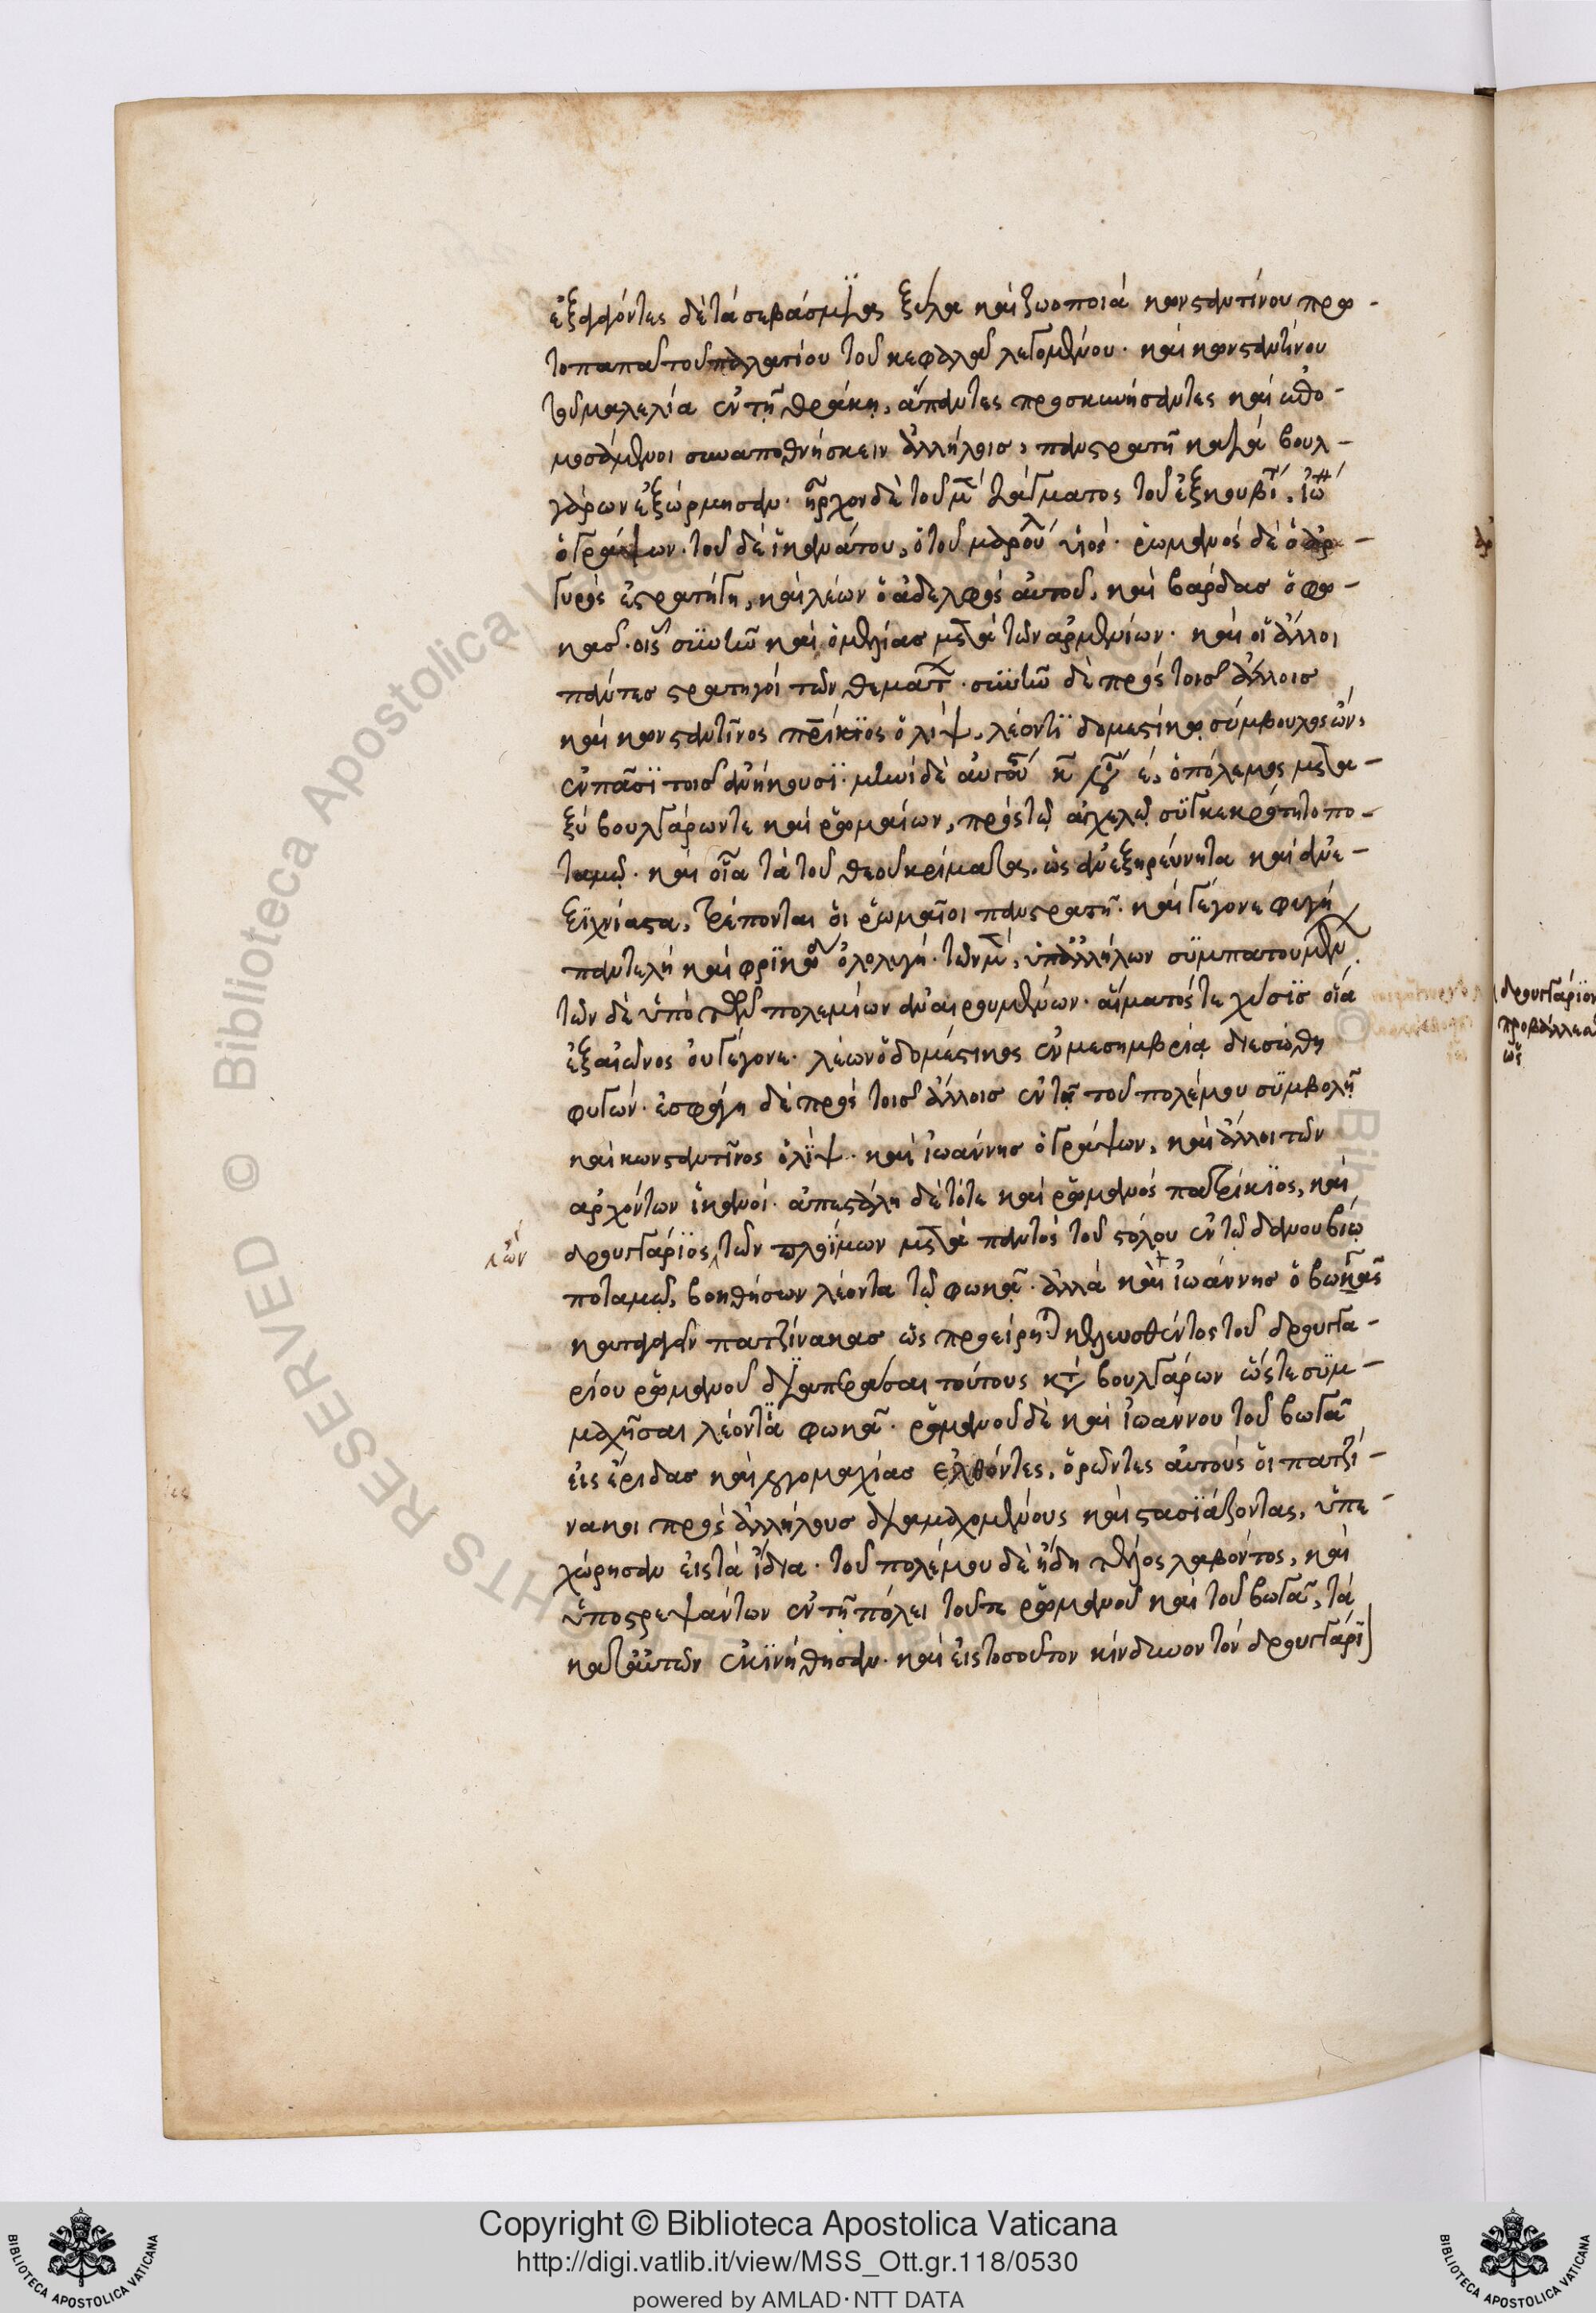 ἐξαγαγόντες δὲ τὰ σεβάσμια ξύλα καὶ ζωοποιὰ κωνσταντίνου πρω-
τοπαπᾶ τοῦ παλατίου τοῦ κεφαλᾶ λεγομένου· καὶ κωνσταντίνου
τοῦ μαλελία ἐν τῇ θράκῃ, ἅπαντες προσκυνήσαντες καὶ
μοσάμενοι συναποθνήσκειν ἀλλήλοις, πανστρατῆ κατὰ βουλ-
γάρων ἐξώρμησαν· ἦρχον δὲ τοῦ μ τάγματος τοῦ ἐξκουβί, ἰω
ὁ γράψων· τοῦ δὲ ἱκανάτου, ὁ τοῦ μαρού υἱός· ῥωμανὸς δὲ ὁ ἀρ-
γυρὸς ἐστρατήγει, καὶ λέων ὁ ἀδελφὸς αὐτοῦ, καὶ βάρδας ὁ φω-
κᾶς· οἷς συνῆν καὶ ὁ μελίας μετὰ τῶν ἀρμενίων· καὶ οἱ ἄλλοι
πάντες στρατηγοὶ τῶν θεμάτ· συνῆν δὲ πρὸς τοῖς ἄλλοις
καὶ κωνσταντῖνος πρίκιος ὁ λίψ, λέοντι δομεστίκῳ σύμβουλος ὢν,
ἐν πᾶσι τοῖς ἀνήκουσι· μηνὶ δὲ αὐγού κ, ὁ πόλεμος μετα-
ξὺ βουλγάρων τε καὶ ῥωμαίων, πρὸς τῷ ἀχελῴ συγκεκρότητο πο-
ταμῷ· καὶ οἷα τὰ τοῦ θεοῦ κρίματα, ὡς ἀνεξηρεύνητα καὶ ἀνε-
ξιχνίαστα, τρέπονται οἱ ῥωμαῖοι πανστρατῆ· καὶ γέγονε φυγὴ
παντελὴ καὶ φρικώ ὀλολυγὴ· τῶν μ, ὑπ' ἀλλήλων συμπατουμέν
τῶν δὲ ὑπὸ τῶν πολεμίων ἀναιρουμένων· αἵματός τε χύσις οἵα
ἐξ αἰῶνος οὐ γέγονε· λέων ὁ δομέστικος ἐν μεσημβρίᾳ διεσώθη
φυγών· ἐσφάγη δὲ πρὸς τοῖς ἄλλοις ἐν τῇ τοῦ πολέμου συμβολῇ
καὶ κωνσταντῖνος ὁ λίψ· καὶ ἰωάννης ὁ γράψων, καὶ ἄλλοι τῶν
ἀρχόντων ἱκανοί· ἀπεστάλη δὲ τότε καὶ ῥωμανὸς πατρίκιος, καὶ
λὼν
δρουγγάριος τῶν πλοΐμων μετὰ παντὸς τοῦ στόλου ἐν τῷ δανουβίῳ
ποταμῷ, βοηθήσων λέοντα τῷ φωκᾷ· ἀλλὰ καὶ ἰωάννης ὁ βωκᾶς
κουταγαγεῖν πατζίνακας ὡς προείρη κελευσθέντος τοῦ δρουγγα-
ρίου ῥωμανοῦ διαπερᾶσαι τούτους κτ βουλγάρων ὥστε συμ-
μαχῆσαι λέοντα φωκᾶ· ῥωμανοῦ δὲ καὶ ἰωάννου τοῦ βωγᾶ
εἰς ἔριδας καὶ λογομαχίας ἐλθόντες, ὁρῶντες αὐτοὺς οἱ πατζί-
νακοι πρὸς ἀλλήλους διαμαχομένους καὶ στασιάζοντας, ὑπε-
χώρησαν εἰς τὰ ἴδια· τοῦ πολέμου δὲ ἤδη τέλος λαβόντος, καὶ
ὑποστρεψάντων ἐν τῇ πόλει τοῦ τε ῥωμανοῦ καὶ τοῦ βωγᾶ, τὰ
κατ' αὐτῶν ἐκινήθησαν· καὶ εἰς τοσοῦτον κίνδυνον τὸν δρουγγάρι
δρουγγάριον
προβάλλεσ
ὡς
Copyright © Biblioteca Apostolica Vaticana
http://digi.vatlib.it/view/MSS_Ott.gr.118/0530
powered by AMLAD·NTT DATA
BIBLIOTECA APOSTOLICA VATICANA
BIBLIOTECA APOSTOLICA VATICANA